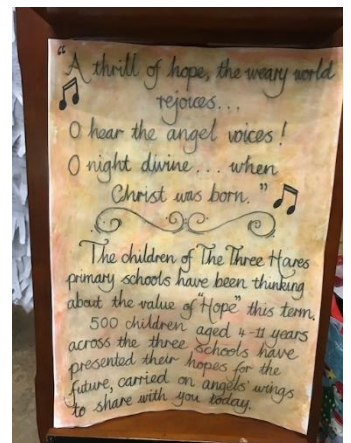 "A thrill of hope, the weary world
rejoices...
O hear the angel voices!
O night divine... when
Christ was born."
The children of The Three Hares
primary schools have been thinking
about the value of "Hope" this term.
500 children aged 4-11 years
across the three schools have
presented their hopes for the
future, carried on angels' wings
to share with you today.